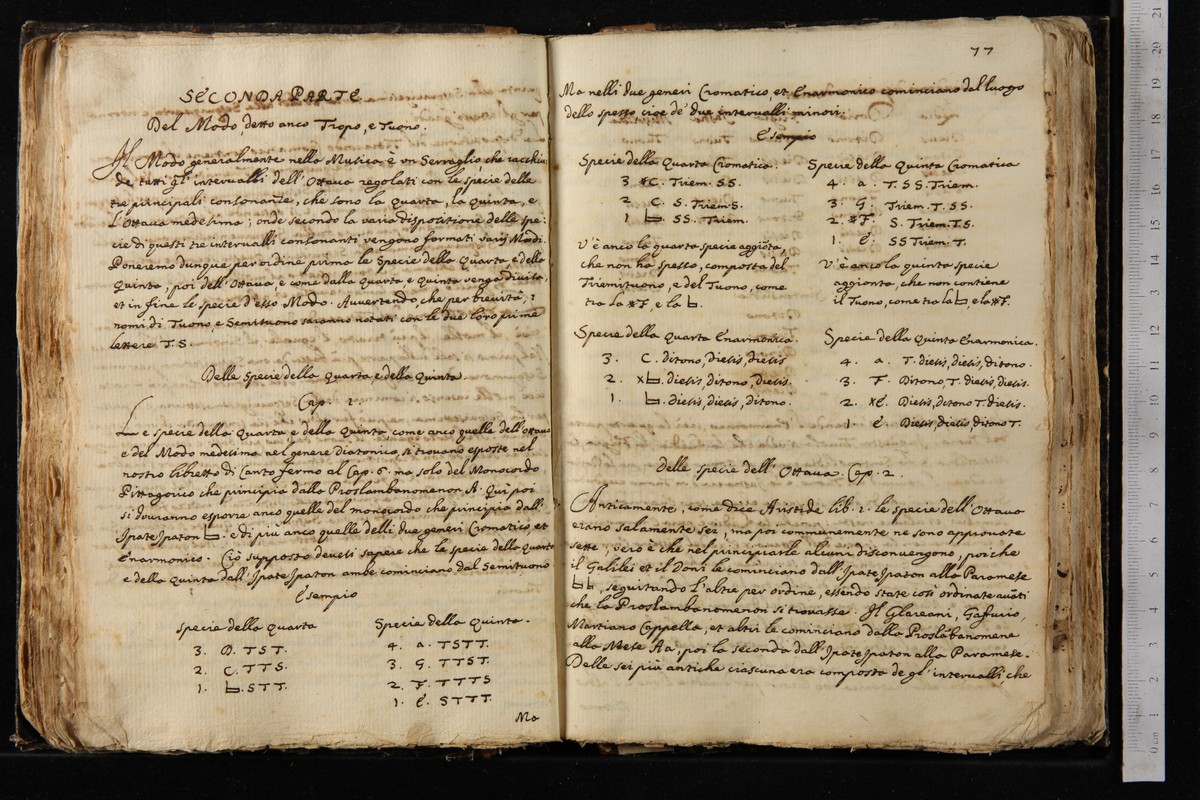 SECONDA PARTE
Del Modo, detto anco Tropo, e Tuono.
Il Modo generalmente nella Musica è un Serraglio che racchiu:
de tutti gl'intervalli dell'Ottava regolati con le specie delle
tre principali consonanze, che sono la quarta, la quinta, e
l'Ottava medesima; onde secondo la varia dispositione delle spe:
cie di questi tre intervalli consonanti vengono formati varij Modi.
Poneremo dunque per ordine prima le Specie della Quarta e della
Quinta, poi dell'Ottava, e come dalla Quarta e Quinta venga divisa,
et in fine le specie d'esso Modo. Avvertendo, che per brevità, i
nomi di Tuono, e Semituono saranno notati con le due loro prime
lettere T.S.
Delle Specie della quarta, e della Quinta
Cap. 1.
Le specie della Quarta e della Quinta, come anco quelle dell'Ottava
e del Modo medesimo nel genere Diatonico, si trovano esposte nel
nostro libretto di Canto fermo al Cap. 6. ma solo del Monocordo
Pittagorico che principia dalla Proslambanomenon A. Qui poi
si dovranno esporre anco quelle del monocordo che principia dall'
Ipate Ipaton ♮. e di più anco quelle delli due generi Cromatico, et
Enarmonico. Ciò supposto devesi sapere che le specie della quarta
e della Quinta dall'Ipate Ipaton ambe cominciano dal Semituono
Esempio
Specie della quarta
3. D. TST.
2. C. TTS.
1. ♮. STT.
Specie della Quinta.
4. a. TSTT.
3. G. TTST.
2. F. TTTS
1. E. STTT.
Ma
77
Ma nelli due generi Cromatico, et Enarmonico cominciano dal luogo
dello spesso cioè de' due intervalli minori.
Esempio
Specie della Quarta Cromatica.
3 ※C. Triem. SS.
2 C. S. Triem S.
1 ♮. SS. Triem.
V'è anco la quarta specie aggiõta,
che non ha spesso, composta del
Triemituono, e del Tuono, come
tra la ※F, e la ♮.
Specie della Quinta Cromatica
4. a. T. SS. Triem.
3. G. Triem. T. SS.
2. ※F. S. Triem. T.S.
1. E. SS Triem. T.
V'è anco la quinta specie
aggionta, che non contiene
il Tuono, come tra la ♮ e la ※F.
Specie della Quarta Enarmonica.
3. C. ditono, diesis, diesis
2. x♮. diesis, ditono, diesis.
1. ♮. diesis, diesis, ditono.
Specie della Quinta Enarmonica.
4. a. T. diesis, diesis, ditono.
3. F. Ditono, T. diesis, diesis.
2. xE. Diesis, ditono T. diesis.
1. E. Diesis, diesis ditono T.
Delle specie dell'Ottava. Cap. 2.
Anticamente, come dice Aristide lib. 1. le specie dell'Ottava
erano solamente sei, ma poi communemente ne sono approvate
sette, vero è che nel principiarle alcuni disconvengono, poi che
il Galilei et il Doni le cominciano dall'Ipate Ipaton alla Paramese
♮♮, seguitando l'altre per ordine, essendo state così ordinate avãti
che la Proslambanomenon si trovasse. Il Glareani, Gafurio,
Martiano Cappella, et altri le cominciano dalla Proslãbanomene
alla Mese Aa, poi la seconda dall'Ipate Ipaton alla Paramese.
Delle sei più antiche ciascuna era composta de gl'intervalli, che